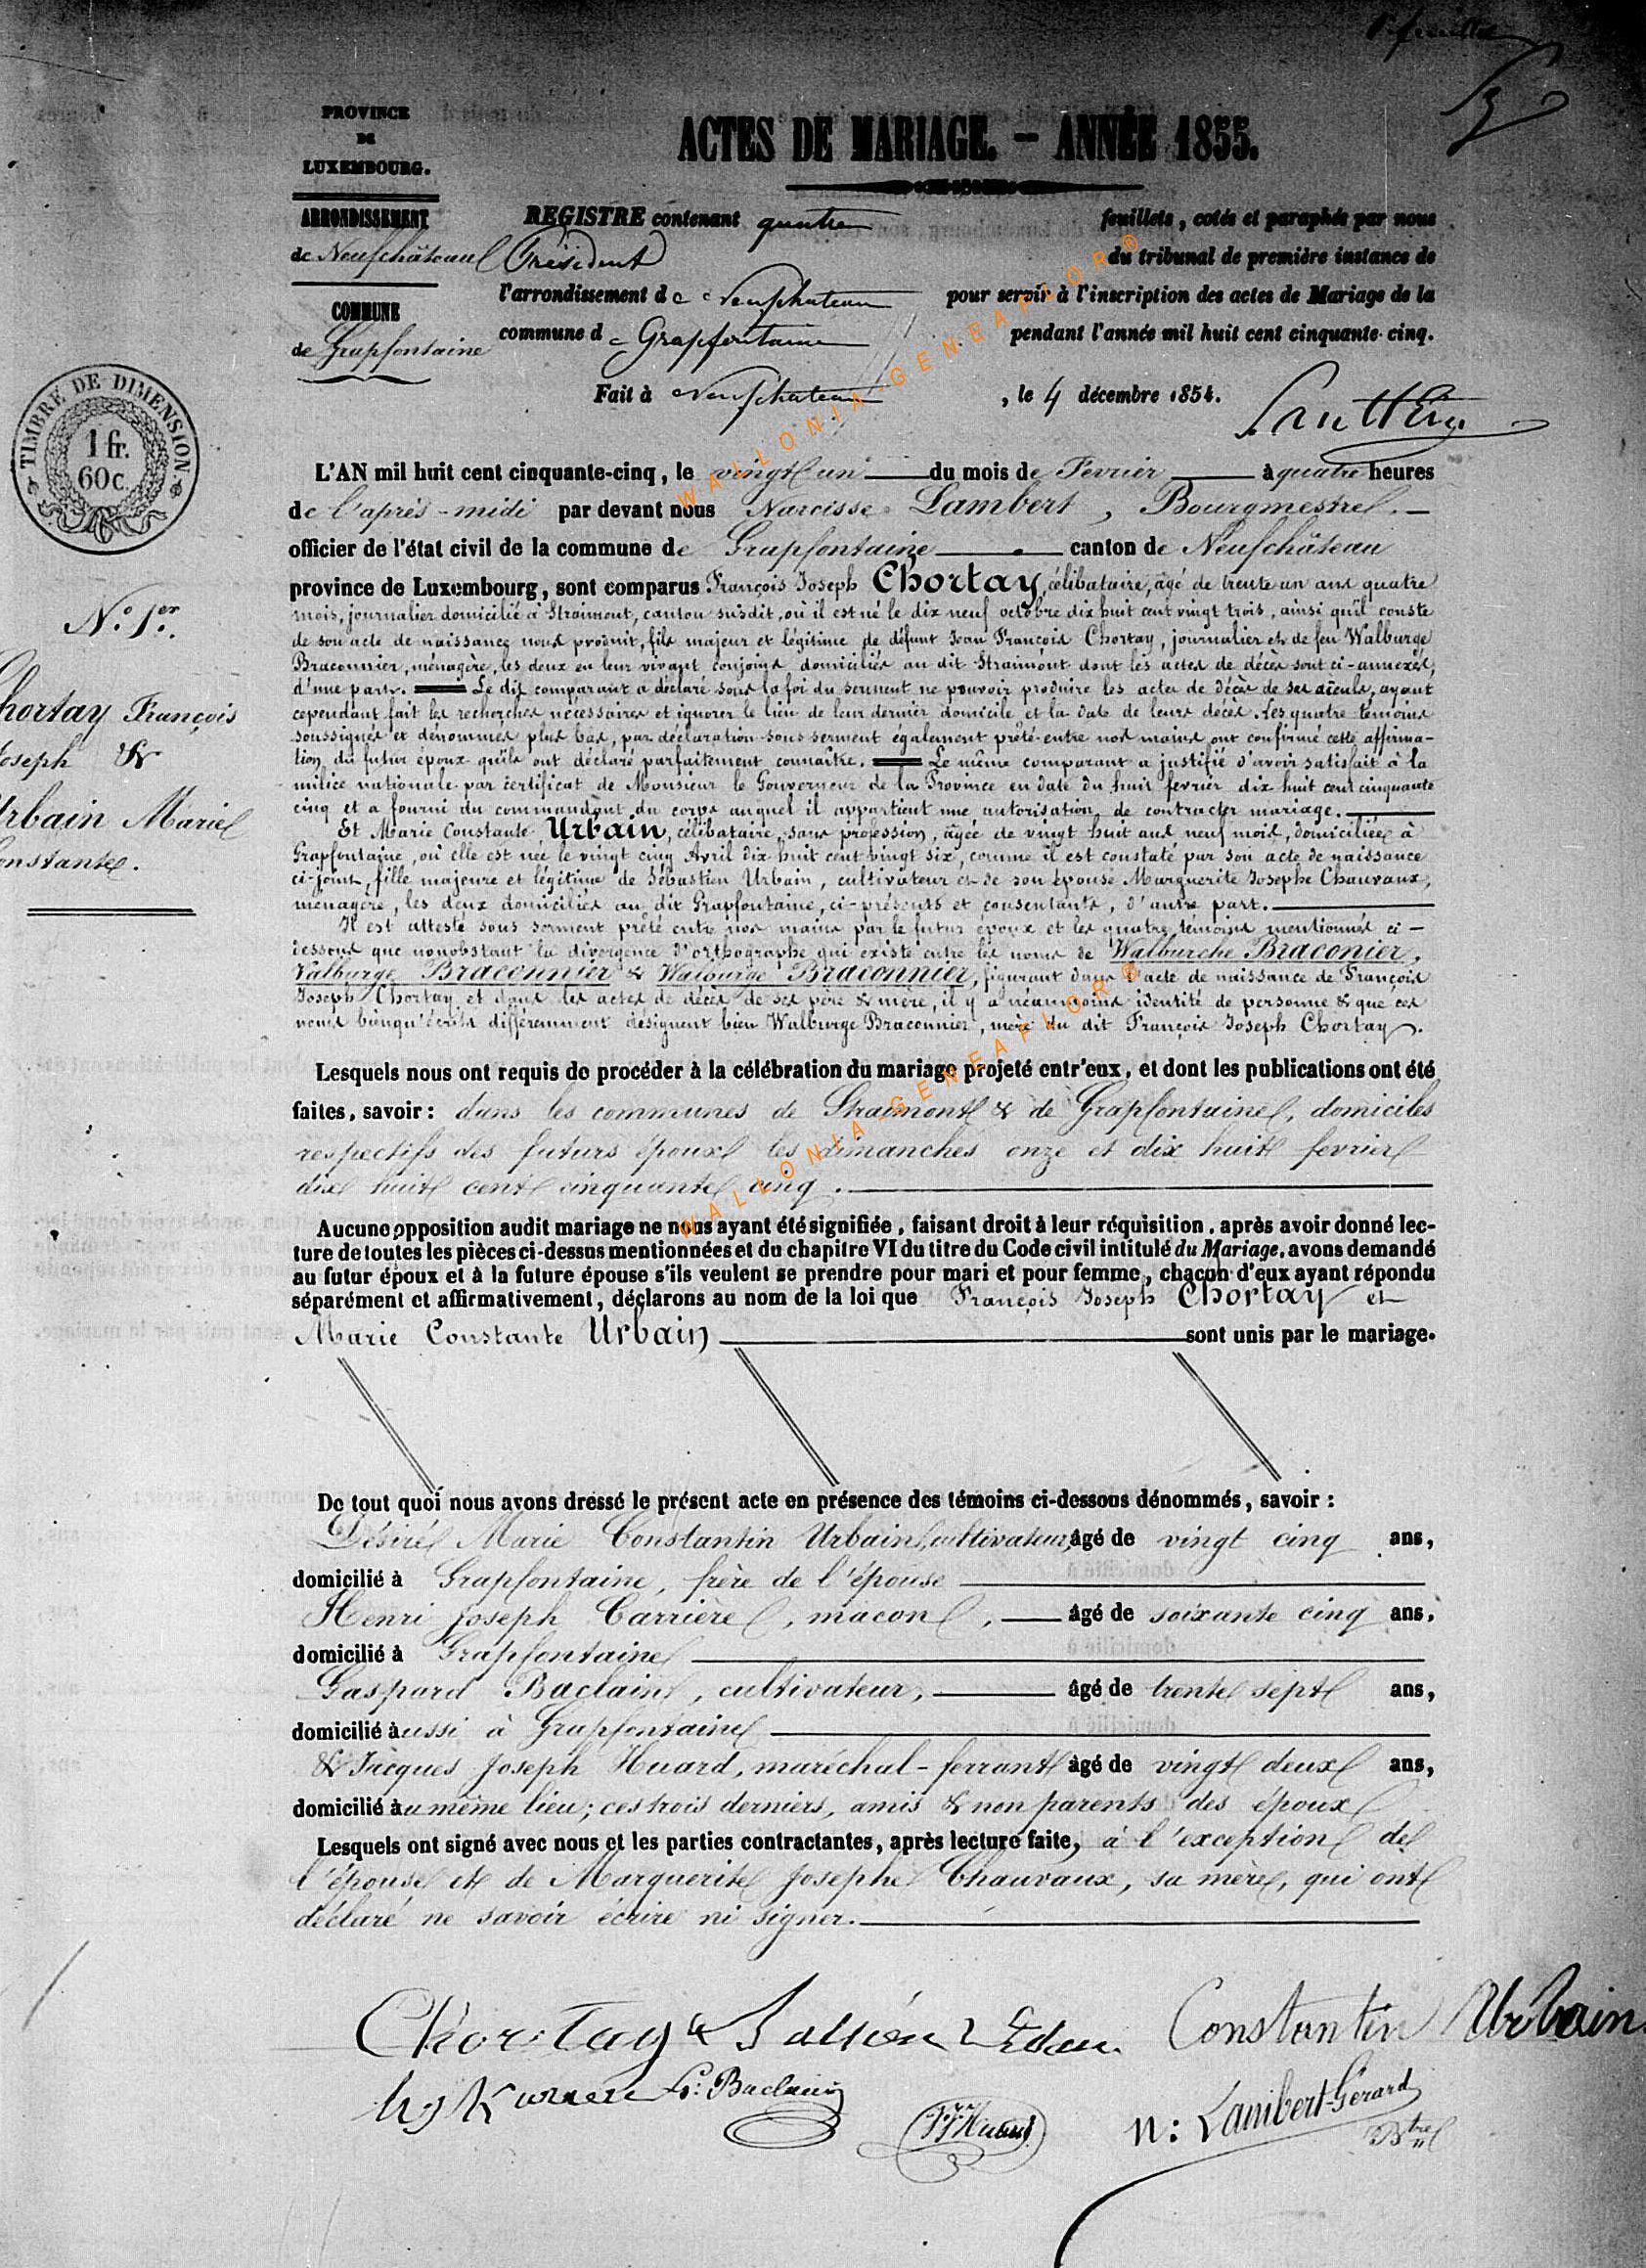 1er feuillet
PROVINCE
DE
LUXEMBOURG.
ARRONDISSEMENT
de Neufchâteau
COMMUNE
de Grapfontaine
ACTES DE MARIAGE. — ANNÉE 1855.
REGISTRE contenant quatre feuillets, cotés et paraphés par nous
Président du tribunal de première instance de
l'arrondissement de Neufchateau pour servir à l'inscription des actes de Mariage de la
commune de Grapfontaine pendant l'année mil huit cent cinquante-cinq.
Fait à Neufchateau, le 4 décembre 1854.
TIMBRE DE DIMENSION
1 fr.
60c.
N.o 1er.
Chortay François
Joseph &
Urbain Marie
Constante.
L'AN mil huit cent cinquante-cinq, le vingt un du mois de Fevrier à quatre heures
de l'après-midi par devant nous Narcisse Lambert, Bourgmestre.
officier de l'état civil de la commune de Grapfontaine canton de Neufchâteau
province de Luxembourg, sont comparus François Joseph Chortay, célibataire, âgé de trente un ans quatre
mois, journalier domicilié à Straimont, canton susdit, où il est né le dix neuf octobre dix huit cent vingt trois, ainsi qu'il conste
de son acte de naissance nous produit, fils majeur et légitime de défunt Jean François Chortay, journalier et de feu Walburge
Braconnier, ménagère, les deux en leur vivant conjoins domiciliés au dit Straimont dont les actes de décès sont ci-annexés,
d'une part. Le dit comparant a déclaré sous la foi du serment ne pouvoir produire les actes de décès de ses aïeuls, ayant
cependant fait les recherches nécessaires et ignorer le lieu de leur dernier domicile et la date de leurs décès. Les quatre témoins
soussignés et dénommés plus bas, par déclaration sous serment également prêté entre nos mains ont confirmé cette affirma-
tion du futur époux qu'ils ont déclaré parfaitement connaître. Le même comparant a justifié d'avoir satisfait à la
milice nationale par certificat de Monsieur le Gouverneur de la Province en date du huit fevrier dix huit cent cinquante
cinq et a fourni du commandant du corps auquel il appartient une autorisation de contracter mariage.
Et Marie Constante Urbain, célibataire, sans profession, âgée de vingt huit ans neuf mois, domiciliée à
Grapfontaine, où elle est née le vingt cinq Avril dix huit cent vingt six, comme il est constaté par son acte de naissance
ci-joint, fille majeure et légitime de Sébastien Urbain, cultivateur et de son épouse Marguerite Josephe Chauvaux,
ménagère, les deux domiciliés au dit Grapfontaine, ci-présents et consentants, d'autre part.
Il est attesté sous serment prêté entre nos mains par le futur époux et les quatre témoins mentionnés ci-
dessous que nonobstant la divergence d'orthographe qui existe entre les noms de Walburche Braconier,
Valburge Braconnier & Walburge Braconnier, figurant dans l'acte de naissance de François
Joseph Chortay et dans les actes de décès de ses père & mère, il y a néanmoins identité de personne & que ces
noms bienqu'écrits différemment désignent bien Walburge Braconnier, mère du dit François Joseph Chortay.
Lesquels nous ont requis de procéder à la célébration du mariage projeté entr'eux, et dont les publications ont été
faites, savoir: dans les communes de Straimont & de Grapfontaine, domiciles
respectifs des futurs époux les dimanches onze et dix huit fevrier
dix huit cent cinquante cinq.
Aucune opposition audit mariage ne nous ayant été signifiée, faisant droit à leur réquisition, après avoir donné lec-
ture de toutes les pièces ci-dessus mentionnées et du chapitre VI du titre du Code civil intitulé du Mariage, avons demandé
au futur époux et à la future épouse s'ils veulent se prendre pour mari et pour femme, chacun d'eux ayant répondu
séparément et affirmativement, déclarons au nom de la loi que François Joseph Chortay et
Marie Constante Urbain sont unis par le mariage.
De tout quoi nous avons dressé le présent acte en présence des témoins ci-dessous dénommés, savoir:
Désiré Marie Constantin Urbain, cultivateur, âgé de vingt cinq ans,
domicilié à Grapfontaine, frère de l'épouse
Henri Joseph Carrière, macon, âgé de soixante cinq ans,
domicilié à Grapfontaine
Gaspard Baclain, cultivateur, âgé de trente sept ans,
domicilié aussi à Grapfontaine
& Jacques Joseph Huard, maréchal-ferrant âgé de vingt deux ans,
domicilié au même lieu; ces trois derniers, amis & non parents des époux
Lesquels ont signé avec nous et les parties contractantes, après lecture faite, à l'exception de
l'épouse et de Marguerite Josephe Chauvaux, sa mère, qui ont
déclaré ne savoir écrire ni signer.
Chortay Constantin Urbain
G: Baclain JJ Huard N: Lambert-Gérard
Btre
WALLONIA-GENEAFLOR®
WALLONIA-GENEAFLOR®